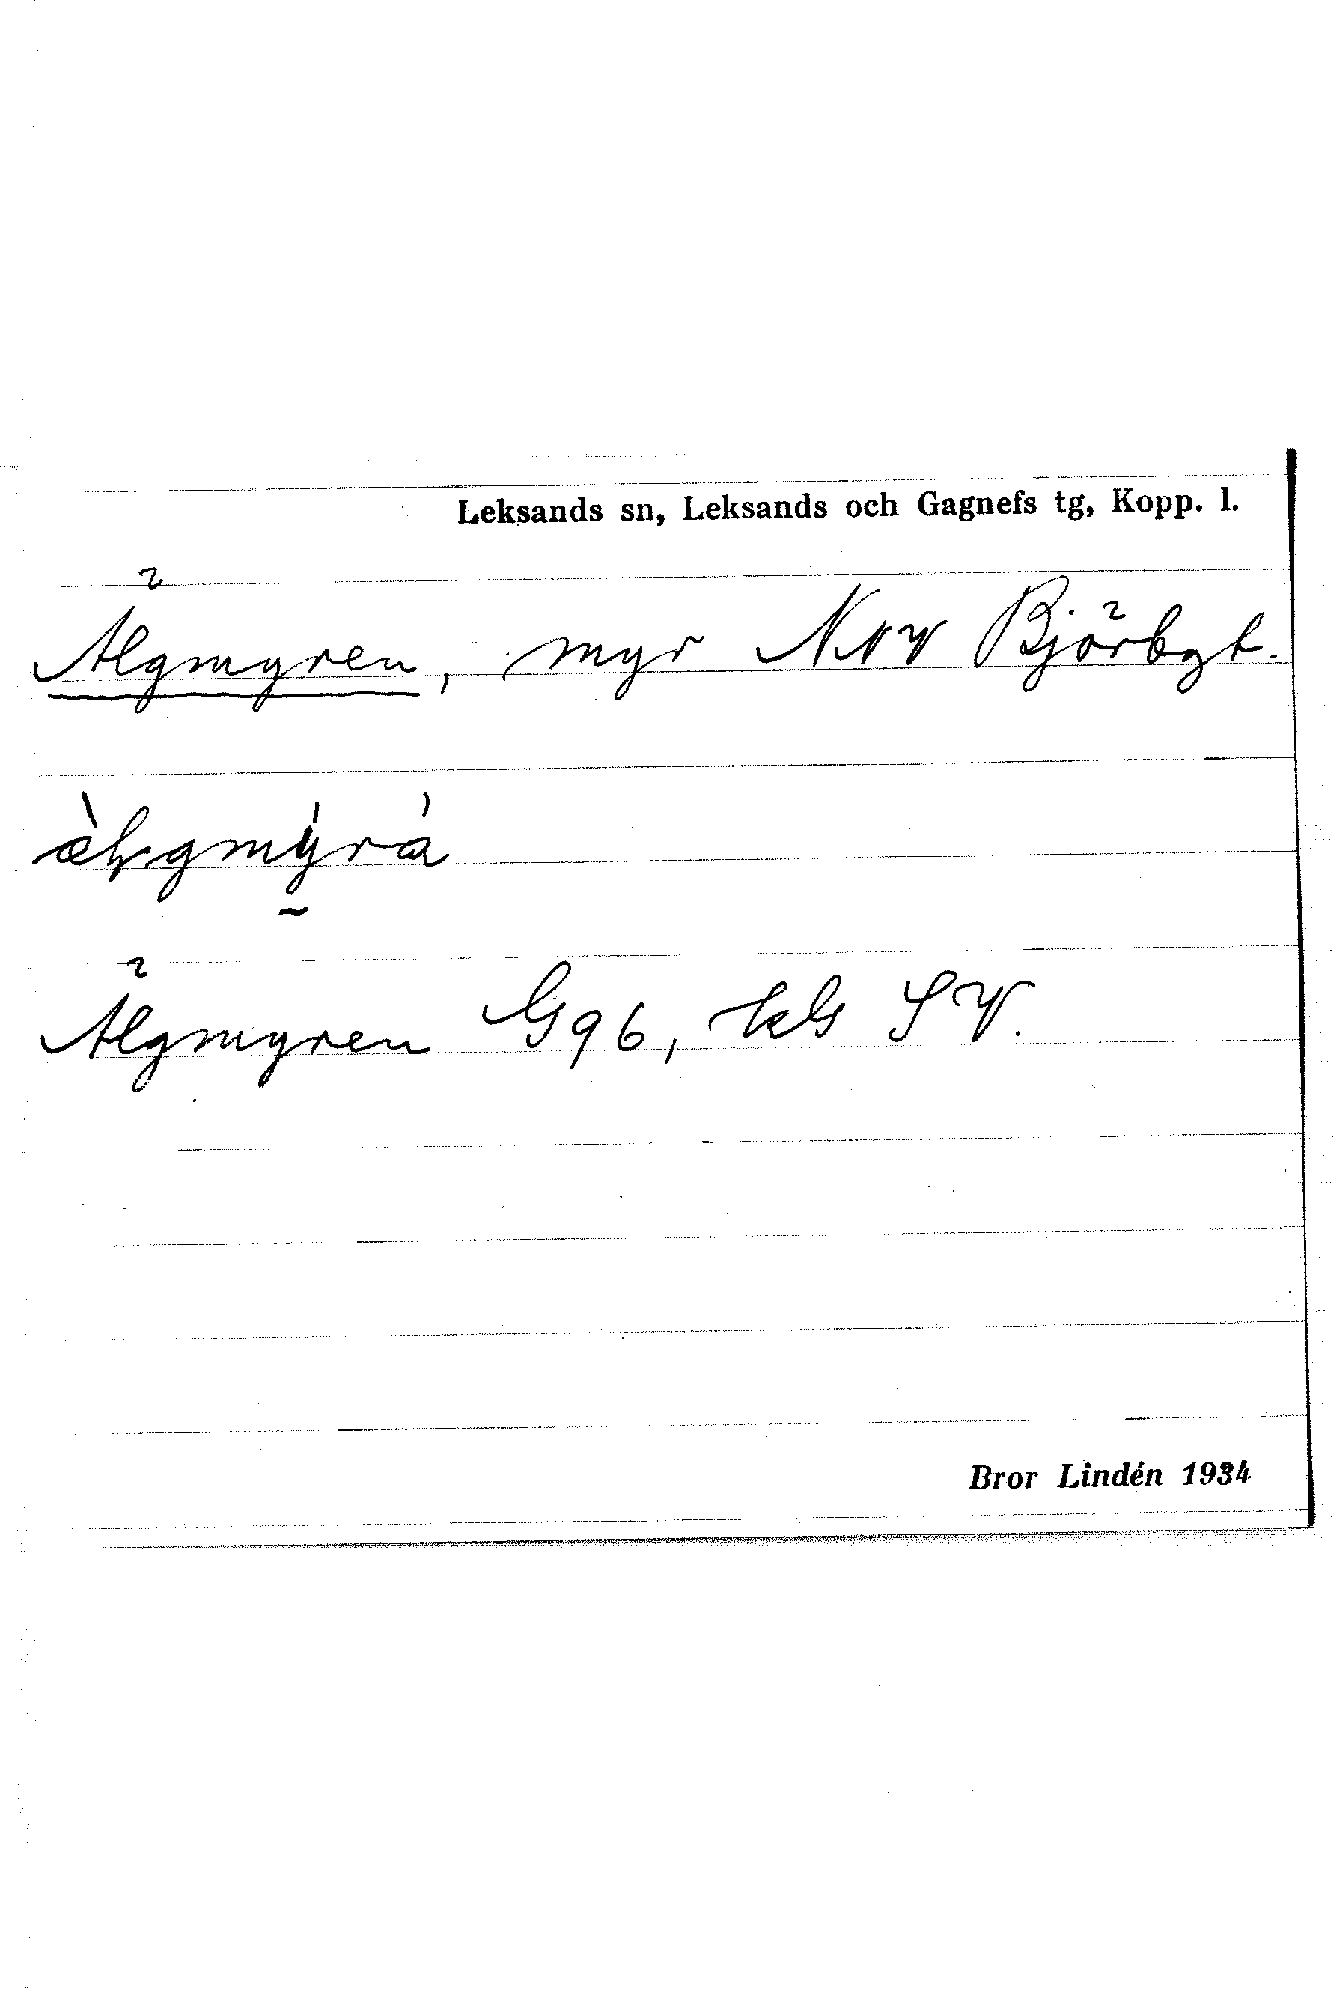 Leksands sn, Leksands och Gagnefs tg, Kopp. l.
Älgmyren, myr NNV Björbgt.
Älgmyren G96, kbl SV.
Bror Lindén 1934